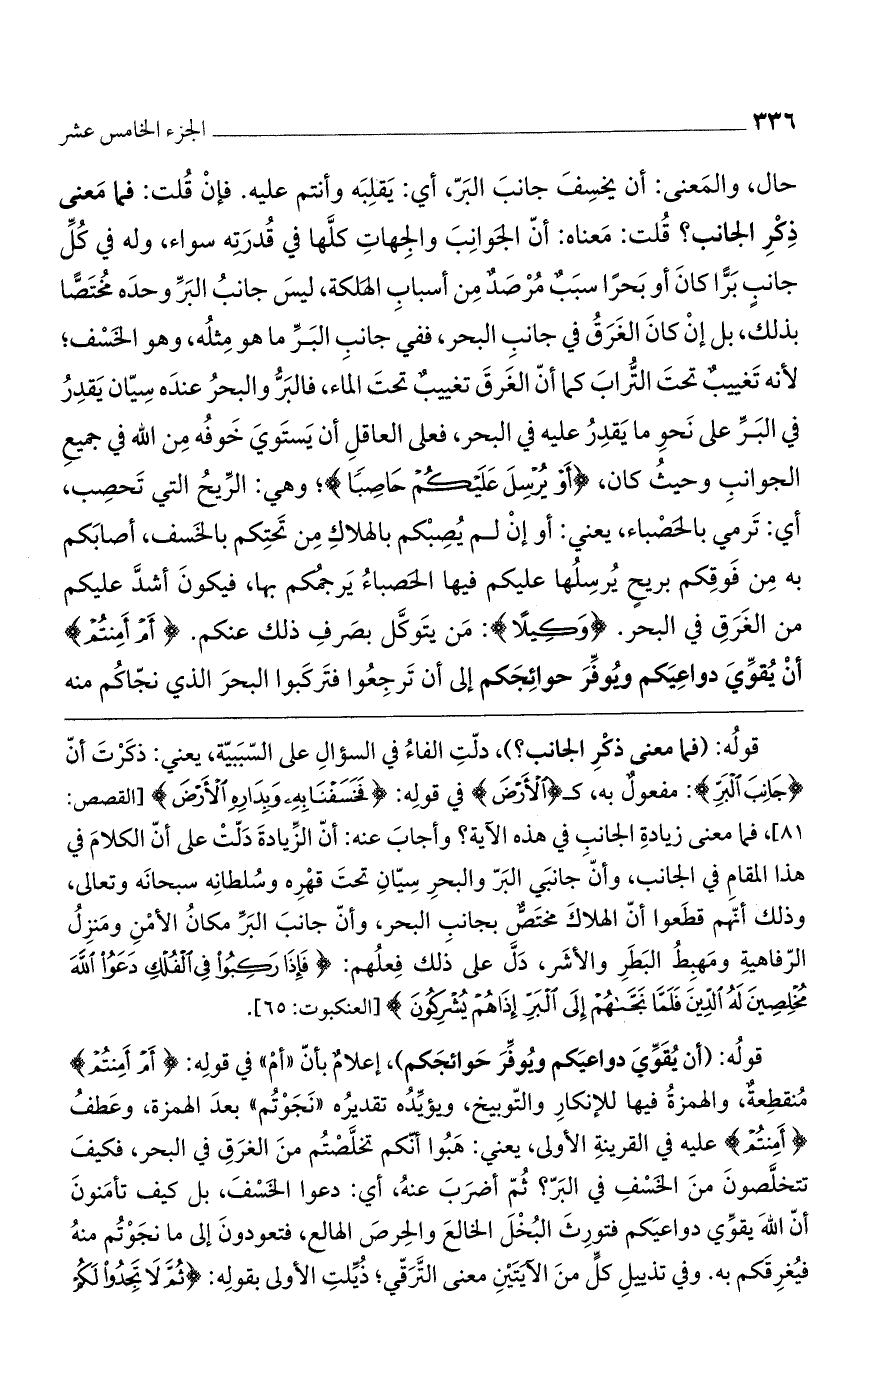 ٣٣٦ الجزء الخامس عشر
حال، والمَعنى: أن يَخسِفَ جانبَ البَرّ، أي: يَقلِبَه وأنتم عليه. فإنْ قُلت: فما مَعنى
ذِكْرِ الجانب؟ قُلت: مَعناه: أنّ الجَوانِبَ والجِهاتِ كلَّها في قُدرَتِه سواء، وله في كُلِّ
جانبٍ بَرًّا كانَ أو بَحرًا سبَبٌ مُرْصَدٌ مِن أسبابِ الهَلكة، ليسَ جانبُ البَرِّ وحدَه مُختَصًّا
بذلك، بل إنْ كانَ الغَرَقُ في جانبِ البحر، ففي جانبِ البَـرِّ ما هو مِثلُه، وهو الخَسْف؛
لأنه تَغييبٌ تحتَ التُّرابَ كما أنّ الغَرقَ تغييبٌ تحتَ الماء، فالبَرُّ والبحرُ عندَه سِيّان يَقدِرُ
في البَـرِّ على نَحوِ ما يَقدِرُ عليه في البحر، فعلى العاقلِ أن يَستَويَ خَوفُه مِن الله في جميعِ
الجوانبِ وحيثُ كان، ﴿أَوْ يُرْسِلَ عَلَيْكُمْ حَاصِبًا﴾؛ وهي: الرِّيحُ التي تَحصِب،
أي: تَرمي بالحَصْباء، يعني: أو إنْ لـم يُصِبْكم بالهلاكِ مِن تَحتِكم بالخَسف، أصابَكم
به مِن فَوقِكم بريحٍ يُرسِلُها عليكم فيها الحَصباءُ يَرجمُكم بها، فيكونَ أشدَّ عليكم
من الغَرَقِ في البحر. ﴿وَكِيلًا﴾: مَن يتَوكَّل بصَرفِ ذلك عنكم. ﴿أَمْ أَمِنتُمْ﴾
أنْ يُقوِّيَ دواعِيَكم ويُوفِّرَ حوائِجَكم إلى أن تَرجِعُوا فتَركَبوا البحرَ الذي نجّاكُم منه
قولُه: (فما معنى ذكْرِ الجانب؟)، دلَّتِ الفاءُ في السؤالِ على السّبَبيّة، يعني: ذكَرْتَ أنّ
﴿جَانِبَ ٱلْبَرِّ﴾: مفعولٌ به، كـ﴿ٱلْأَرْضَ﴾ في قولِه: ﴿فَخَسَفْنَا بِهِۦ وَبِدَارِهِ ٱلْأَرْضَ﴾ [القصص:
٨١]، فما معنى زيادةِ الجانبِ في هذه الآية؟ وأجابَ عنه: أنّ الزِّيادةَ دَلَّتْ على أنّ الكلامَ في
هذا المقامِ في الجانب، وأنّ جانبَي البَرّ والبحرِ سِيّانِ تحتَ قهْرِه وسُلطانِه سبحانَه وتعالى،
وذلك أنّهم قطَعوا أنّ الهلاكَ مختَصٌّ بجانبِ البحر، وأنّ جانبَ البَرِّ مكانُ الأمْنِ ومَنزِلُ
الرّفاهيةِ ومَهبِطُ البَطَرِ والأشَر، دَلَّ على ذلك فِعلُهم: ﴿فَإِذَا رَكِبُوا۟ فِى ٱلْفُلْكِ دَعَوُا۟ ٱللَّهَ
مُخْلِصِينَ لَهُ ٱلدِّينَ فَلَمَّا نَجَّىٰهُمْ إِلَى ٱلْبَرِّ إِذَا هُمْ يُشْرِكُونَ﴾ [العنكبوت: ٦٥].
قولُه: (أن يُقَوِّيَ دواعيَكم ويُوفِّرَ حَوائجَكم)، إعلامٌ بأنّ «أمْ» في قولِه: ﴿أَمْ أَمِنتُمْ﴾
مُنقطِعةٌ، والهمزةُ فيها للإنكارِ والتّوبيخ، ويؤيِّدُه تقديرُه «نَجَوْتُم» بعدَ الهمزة، وعَطفُ
﴿أَمِنتُمْ﴾ عليه في القرينةِ الأولى، يعني: هَبُوا أنّكم تخلَّصْتُم منَ الغرَقِ في البحر، فكيفَ
تتخلَّصونَ منَ الخَسْفِ في البَرّ؟ ثُمّ أضرَبَ عنهُ، أي: دعوا الخَسْفَ، بل كيف تأمَنونَ
أنّ اللهَ يقوِّي دواعيَكم فتورِثَ البُخْلَ الخالعَ والحِرصَ الهالع، فتعودونَ إلى ما نجَوْتُم منهُ
فيُغرِقَكم به. وفي تذييلِ كلٍّ منَ الآيتَيْنِ معنى التَّرَقّي؛ ذُيِّلتِ الأولى بقولِه: ﴿ثُمَّ لَا تَجِدُوا۟ لَكُمْ